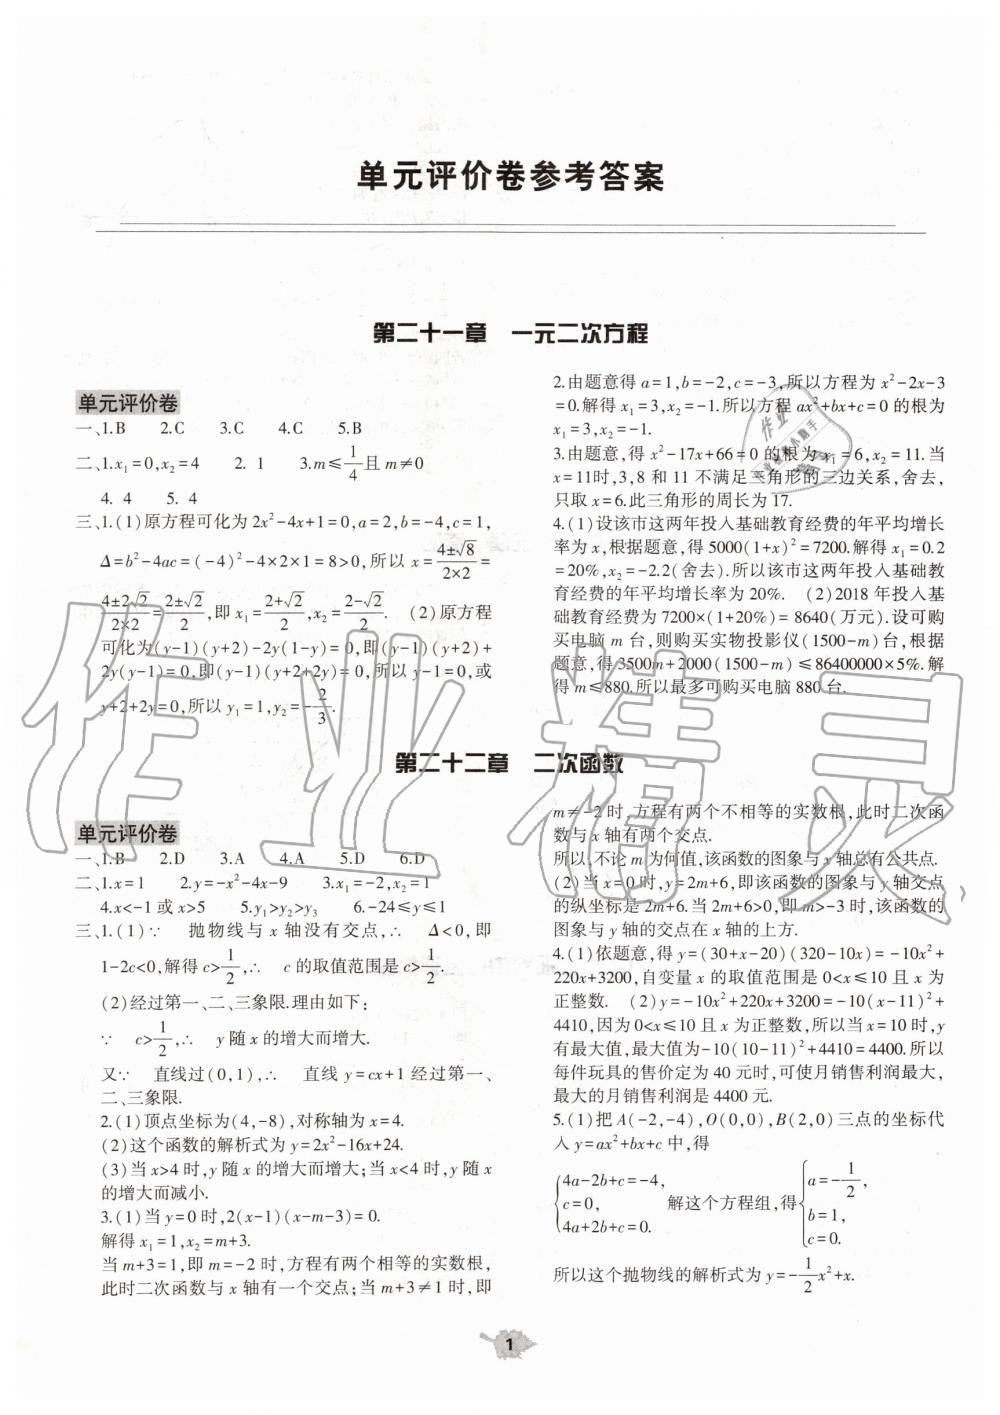 单元评价卷参考答案
第二十一章 一元二次方程
单元评价卷
一、1.B 2.C 3.C 4.C 5.B
二、1.x₁=0,x₂=4 2. 1 3.m≤1/4且 m≠0
4. 4 5. 4
三、1.(1)原方程可化为 2x²-4x+1=0,a=2,b=-4,c=1,
Δ=b²-4ac=(-4)²-4×2×1=8>0,所以 x=(4±√8)/(2×2)=
(4±2√2)/(2×2)=(2±√2)/2,即 x₁=(2+√2)/2,x₂=(2-√2)/2. (2)原方程
可化为(y-1)(y+2)-2y(1-y)=0,即(y-1)(y+2)+
2y(y-1)=0,即(y-1)(y+2+2y)=0,所以 y-1=0,或
y+2+2y=0,所以 y₁=1,y₂=-2/3.
2.由题意得 a=1,b=-2,c=-3,所以方程为 x²-2x-3
=0.解得 x₁=3,x₂=-1.所以方程 ax²+bx+c=0 的根为
x₁=3,x₂=-1.
3.由题意,得 x²-17x+66=0 的根为 x₁=6,x₂=11.当
x=11时,3,8 和 11 不满足三角形的三边关系,舍去,
只取 x=6.此三角形的周长为 17.
4.(1)设该市这两年投入基础教育经费的年平均增长
率为 x,根据题意,得 5000(1+x)²=7200.解得 x₁=0.2
=20%,x₂=-2.2(舍去).所以该市这两年投入基础教
育经费的年平均增长率为 20%. (2)2018 年投入基
础教育经费为 7200×(1+20%)=8640(万元).设可购
买电脑 m 台,则购买实物投影仪(1500-m)台,根据
题意,得 3500m+2000(1500-m)≤86400000×5%.解
得 m≤880.所以最多可购买电脑 880 台.
第二十二章 二次函数
单元评价卷
一、1.B 2.D 3.A 4.A 5.D 6.D
二、1.x=1 2.y=-x²-4x-9 3.x₁=-2,x₂=1
4.x<-1 或 x>5 5.y₁>y₂>y₃ 6.-24≤y≤1
三、1.(1)∵ 抛物线与 x 轴没有交点,∴ Δ<0,即
1-2c<0,解得 c>1/2,∴ c 的取值范围是 c>1/2.
(2)经过第一、二、三象限.理由如下:
∵ c>1/2,∴ y 随 x 的增大而增大.
又∵ 直线过(0,1),∴ 直线 y=cx+1 经过第一、
二、三象限.
2.(1)顶点坐标为(4,-8),对称轴为 x=4.
(2)这个函数的解析式为 y=2x²-16x+24.
(3)当 x>4 时,y 随 x 的增大而增大;当 x<4 时,y 随 x
的增大而减小.
3.(1)当 y=0 时,2(x-1)(x-m-3)=0.
解得 x₁=1,x₂=m+3.
当 m+3=1,即 m=-2 时,方程有两个相等的实数根,
此时二次函数与 x 轴有一个交点;当 m+3≠1 时,即
m≠-2 时,方程有两个不相等的实数根,此时二次函
数与 x 轴有两个交点.
所以,不论 m 为何值,该函数的图象与 x 轴总有公共点.
(2)当 x=0 时,y=2m+6,即该函数的图象与 y 轴交点
的纵坐标是 2m+6.当 2m+6>0,即 m>-3 时,该函数的
图象与 y 轴的交点在 x 轴的上方.
4.(1)依题意,得 y=(30+x-20)(320-10x)=-10x²+
220x+3200,自变量 x 的取值范围是 0<x≤10 且 x 为
正整数. (2)y=-10x²+220x+3200=-10(x-11)²+
4410,因为 0<x≤10 且 x 为正整数,所以当 x=10 时,y
有最大值,最大值为-10(10-11)²+4410=4400.所以
每件玩具的售价定为 40 元时,可使月销售利润最大,
最大的月销售利润是 4400 元.
5.(1)把 A(-2,-4),O(0,0),B(2,0)三点的坐标代
入 y=ax²+bx+c 中,得
{4a-2b+c=-4, c=0, 4a+2b+c=0. 解这个方程组,得{a=-1/2, b=1, c=0.
所以这个抛物线的解析式为 y=-1/2x²+x.
1
作业精灵